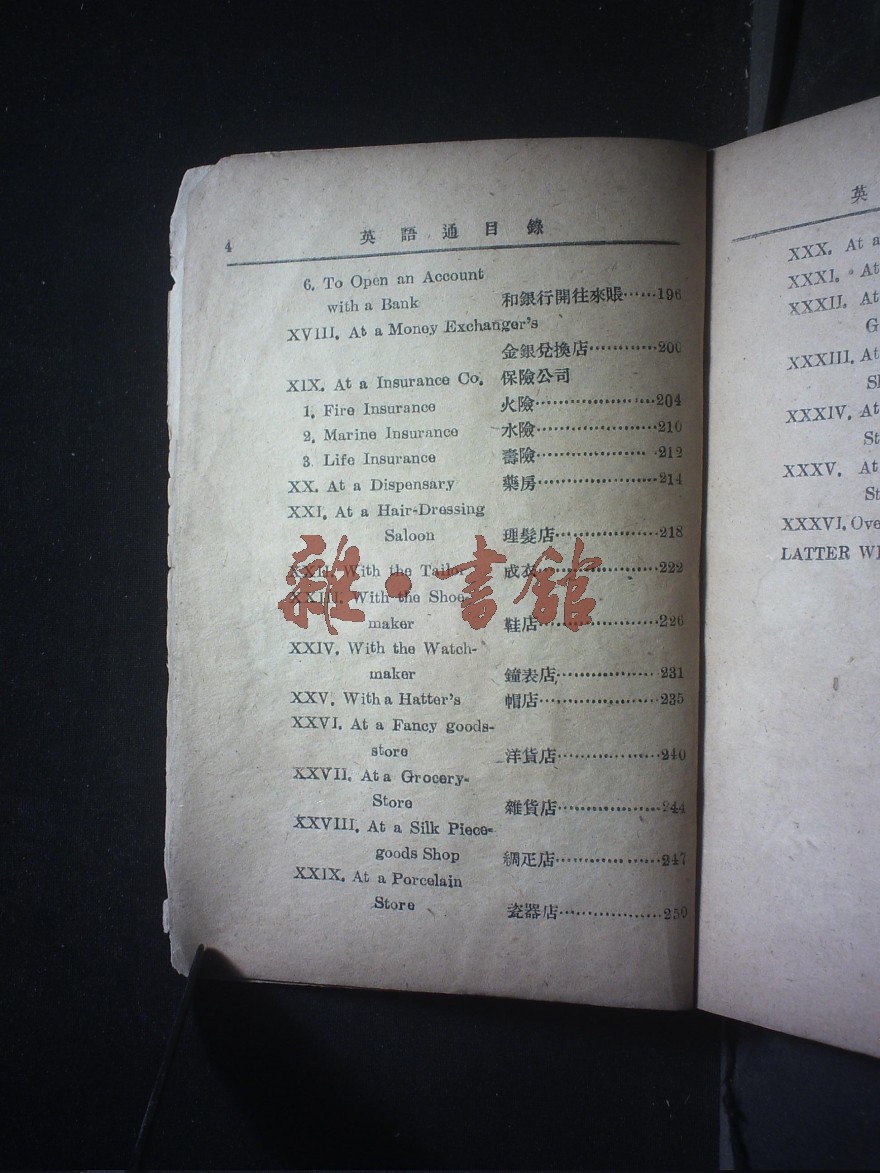 4 英語通目錄
6. To Open an Account
with a Bank 和銀行開往來賬……196
XVIII. At a Money Exchanger's
金銀兌換店…………200
XIX. At a Insurance Co. 保險公司
1. Fire Insurance 火險…………………204
2. Marine Insurance 水險…………………210
3 Life Insurance 壽險…………………212
XX. At a Dispensary 藥房…………………214
XXI. At a Hair-Dressing
Saloon 理髮店………………218
XXII. With the Tailor 成衣…………………222
XXIII. With the Shoe-
maker 鞋店…………………226
XXIV. With the Watch-
maker 鐘表店………………231
XXV. With a Hatter's 帽店…………………235
XXVI. At a Fancy goods-
store 洋貨店………………240
XXVII. At a Grocery-
Store 雜貨店………………244
XXVIII. At a Silk Piece-
goods Shop 綢疋店………………247
XXIX. At a Porcelain
Store 瓷器店………………250
雜·書館
英
XXX. At a
XXXI. At
XXXII. At
G
XXXIII. At
Sh
XXXIV. At
St
XXXV. At
St
XXXVI. Ove
LATTER WI